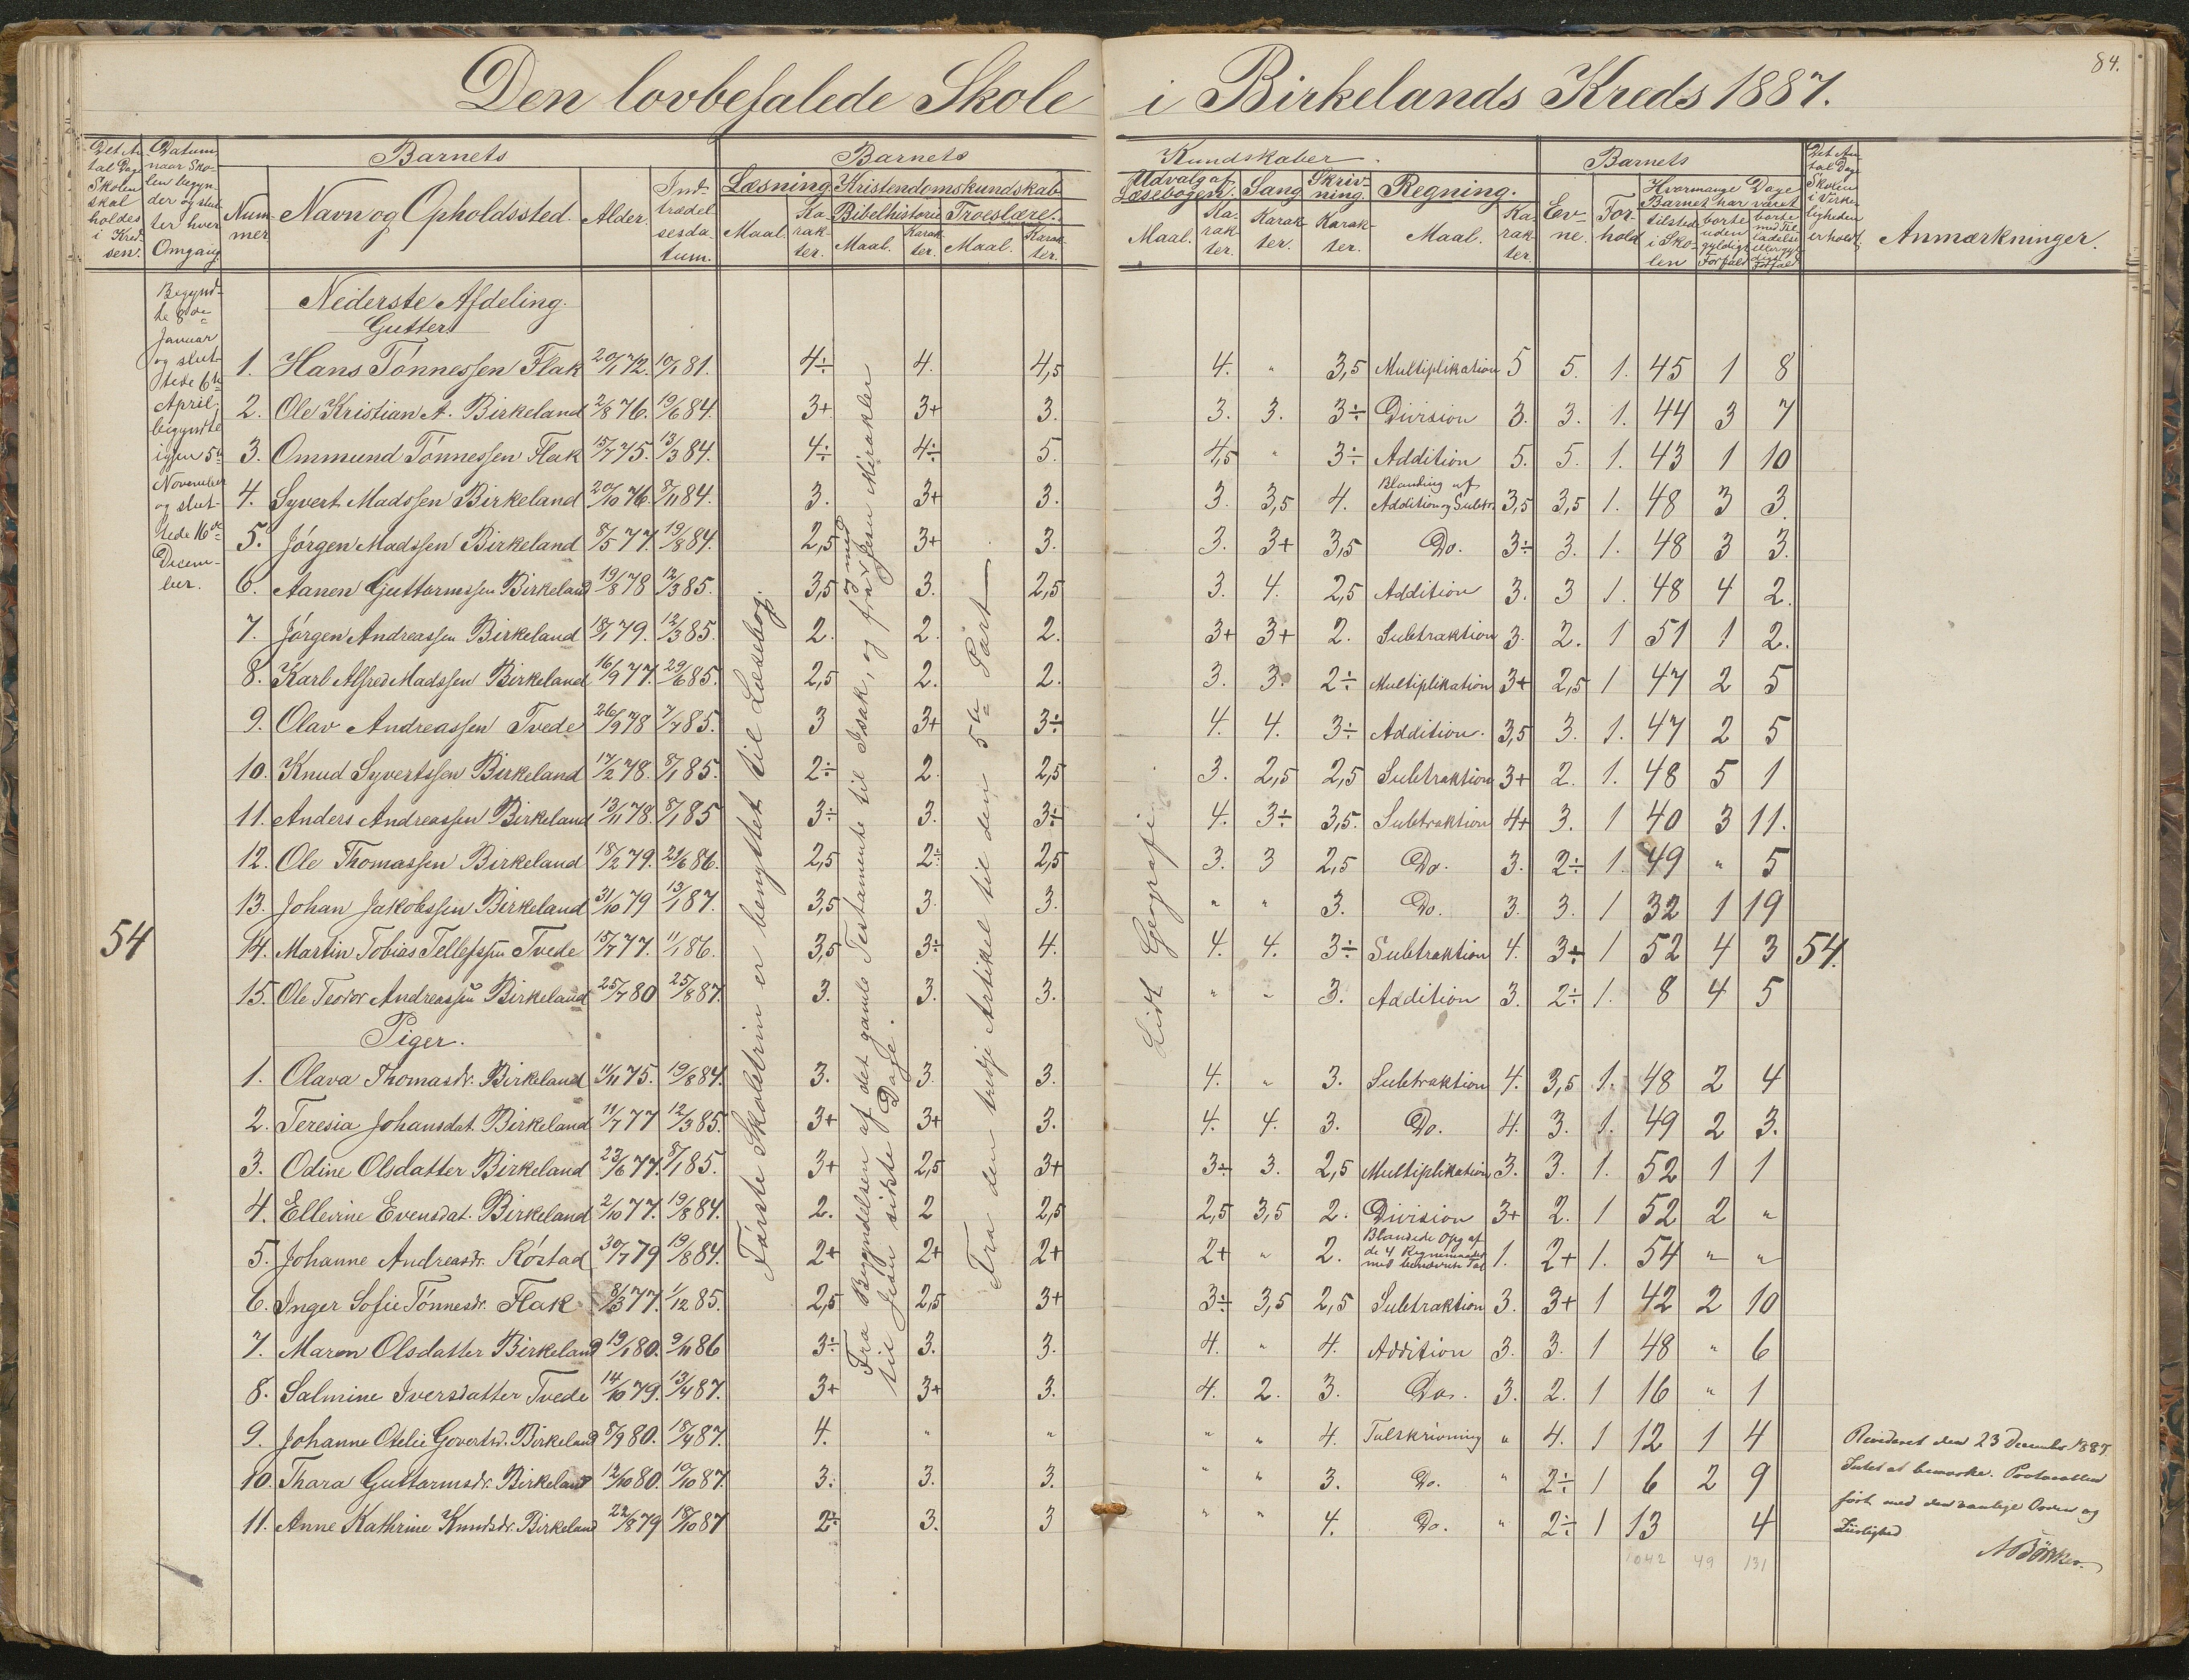 Den lovbefalede Skole i Birkelands Kreds 1887.
84.
Det An-
tal Dage
Skolen
skal
holdes
i Kred-
sen.
Datum,
naar Sko-
len begyn-
der og slut-
ter hver
Omgang.
Barnets
Num-
mer
Navn og Opholdssted.
Alder.
Ind-
trædel
sesda-
tum.
Barnets
Læsning.
Kristendomskundskab
Bibelhistorie
Troeslære.
Maal.
Ka-
rak-
ter.
Maal.
Karak-
ter.
Maal.
Karak-
ter.
Kundskaber.
Udvalg af
Læsebogen.
Sang
Skriv-
ning.
Regning.
Maal.
Ka-
rak-
ter.
Karak-
ter.
Karak-
ter.
Maal.
Ka-
rak-
ter.
Barnets
Ev-
ne.
For-
hold
Hvormange Dage
Barnet har været
tilstede
i Sko-
len
borte
uden
gyldigt
Forfald
borte
med Til-
ladelse
eller gyl-
digt
Forfald
Det An-
tal Dage
Skolen
i Virke-
ligheden
er holdt.
Anmærkninger.
Begynd-
te 8de
Januar
og slut-
tede 6te
April;
begyndte
igjen 5te
November
og slut-
tede 16de
Decem-
ber.
Nederste Afdeling.
Gutter.
1. Hans Tónnessen Flak 20/1 72. 10/1 81. 4÷ 4. 4,5 4. " 3,5 Multiplikation 5 5. 1. 45 1 8
2. Ole Kristian A. Birkeland 2/8 76. 19/6 84. 3+ 3+ 3. 3. 3. 3÷ Division 3. 3. 1. 44 3 7
3. Ommund Tónnessen Flak 15/7 75. 13/3 84. 4÷ 4÷ 5. 4,5 " 3÷ Addition 5. 5. 1. 43 1 10
4. Syvert Madssen Birkeland 20/10 76. 8/11 84. 3. 3+ 3. 3. 3,5 4. Blanding af Addition og Subtr. 3,5 3,5 1. 48 3 3.
5. Jórgen Madssen Birkeland 8/5 77. 19/8 84. 2,5 3+ 3. 3. 3+ 3,5 Do. 3÷ 3. 1. 48 3 3.
6. Aanen Guttormssen Birkeland 19/8 78 12/3 85. 3,5 3. 2,5 3. 4. 2,5 Addition 3. 3 1. 48 4 2.
7. Jórgen Andreassen Birkeland 18/1 79. 12/3 85. 2. 2. 2. 3+ 3+ 2. Subtraktion 3. 2. 1 51 1 2.
8. Karl Alfred Madssen Birkeland 16/9 77. 29/6 85. 2,5 2. 2. 3. 3. 2÷ Multiplikation 3+ 2,5 1 47 2 5
9. Olav Andreassen Tvede 26/9 78 7/7 85. 3 3+ 3÷ 4. 4. 3÷ Addition. 3,5 3. 1. 47 2 5
10. Knud Syvertssen Birkeland 17/2 78. 8/1 85. 2÷ 2. 2,5 3. 2,5 2,5 Subtraktion 3+ 2. 1. 48 5 1
11. Anders Andreassen Birkeland 13/11 78. 8/1 85 3÷ 3. 3÷ 4. 3÷ 3,5. Subtraktion 4+ 3. 1 40 3 11.
12. Ole Thomassen Birkeland 18/2 79. 21/6 86. 2,5 2÷ 2,5 3. 3 2,5 Do. 3. 2÷ 1. 49 " 5
13. Johan Jakobssen Birkeland 31/10 79 13/1 87. 3,5 3. 3. " " 3. Do. 3. 3. 1 32 1 19
54 14. Martin Tobias Tellefssen Tvede 15/7 77. 11/1 86. 3,5 3÷ 4. 4. 4. 3÷ Subtraktion 4. 3÷ 1 52 4 3 54.
15. Ole Teodor Andreassen Birkeland 25/7 80 25/8 87. 3. 3. 3. " " 3. Addition 3. 2÷ 1. 8 4 5
Piger.
1. Olava Thomasdr. Birkeland 11/11 75. 19/8 84. 3. 3. 3. 4. " 3. Subtraktion 4. 3,5 1. 48 2 4
2. Teresia Johansdat. Birkeland 11/7 77 12/3 85. 3+ 3+ 3. 4. 4. 3. Do. 4. 3. 1. 49 2 3.
3. Odine Olsdatter Birkeland 23/6 77. 8/1 85. 3+ 2,5 3+ 3÷ 3. 2,5 Multiplikation 3. 3. 1. 52 1 1
4. Ellevine Evensdat. Birkeland 2/10 77. 19/8 84. 2. 2 2,5 2,5 3,5 2. Division 3+ 2. 1 52 2 "
5. Johanne Andreasdr. Róstad 30/7 79 19/8 84. 2+ 2+ 2+ 2+ " 2. Blandede Opg af de 4 Regnemaader med benævnte Tal 1. 2+ 1. 54 " "
6. Inger Sofie Tónnesdr. Flak 8/3 77. 1/12 85. 2,5 2,5 3+ 3÷ 3,5 2,5 Subtraktion 3. 3+ 1 42 2 10
7. Maren Olsdatter Birkeland 19/1 80. 9/11 86 3÷ 3. 3. 4. " 4. Addition 3. 3. 1 48 " 6
8. Salmine Iversdatter Tvede 14/10 79. 13/4 87. 3+ 3+ 3. 4. 2. 3. Do. 3. 2. 1 16 " 1
9. Johanne Otelie Govertsd. Birkeland 8/9 80. 18/4 87. 4. " " " " 4. Talskrivning " 4. 1 12 1 4
10. Thara Guttormsdr. Birkeland 12/10 80. 10/10 87. 3. 3. 3. " " 3. Do. " 2÷ 1 6 2 9
11. Anne Kathrine Knudsdr. Birkeland 22/8 79 18/10 87 2÷ 3. 3 " " 4. Do. " 2÷ 1 13 4
1042 49 131
Fórste Skoletrin er benyttet til Læsebog.
Fra Begyndelsen af det gamle Testamente til Isak, og fra og med Jesu Mirakler
til Jesu sidste Dage.
Fra den tredje Artikel til den 5te Part
Lidt Geografi.
Revideret den 23 December 1887
Intet at bemærke. Protocollen
fört med den vanlige Orden og
Ziirlighed